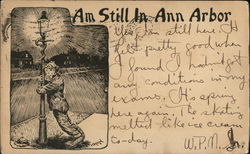 Am Still In Ann Arbor
Yes, I am still here. I
felt pretty good when
I found I had not got
any conditions in my
exams. It's spring
here again. The skating
melted like ice cream
to-day.
W.P.M.